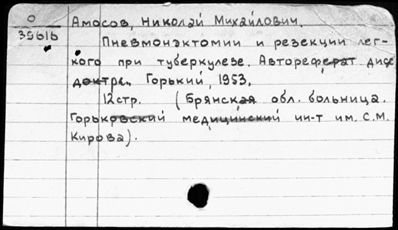 О Амосов, Николай Михайлович.
39616
Пневмонэктомии и резекции лег-
кого при туберкулезе. Автореферат дисс
доктра. Горький, 1953.
12стр. (Брянская обл. больница.
Горьковский медицинский ин-т им. С.М.
Кирова).